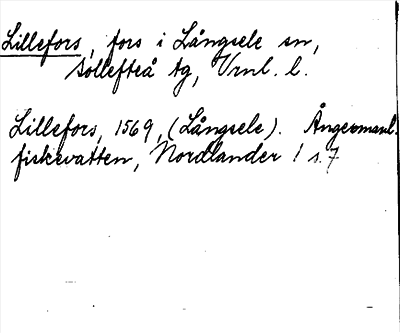 Lillefors, fors i Långsele sn,
Sollefteå tg, Vrnl. l.
Lillefors, 1569, (Långsele). Ångermanl.
fiskevatten, Nordlander 1 s. 7